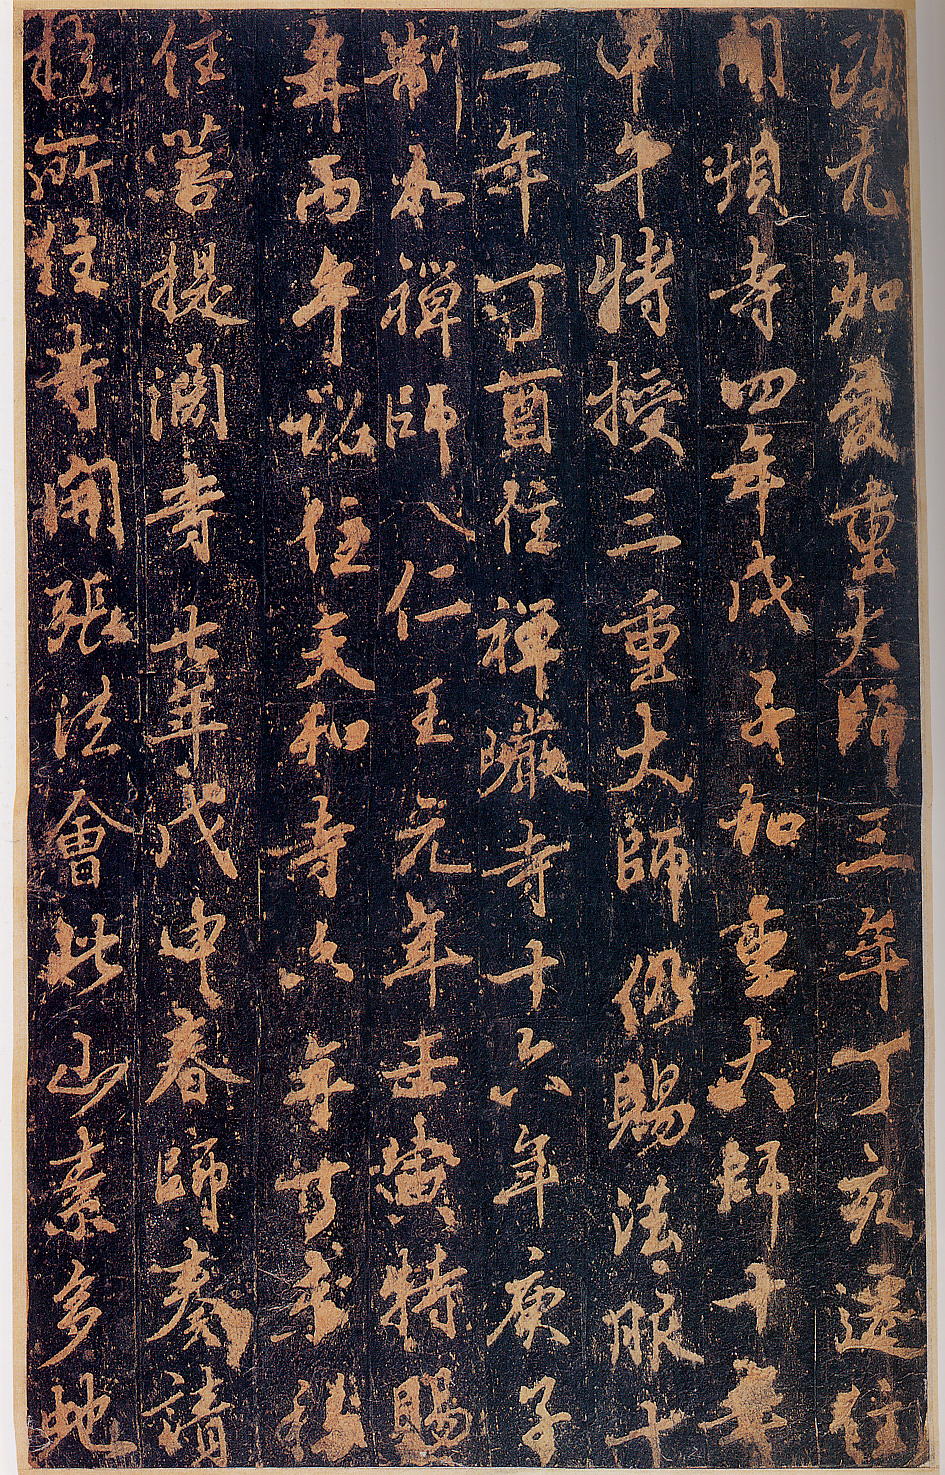 元加爰重大師三年丁亥遷住
開頓寺四年戊子加重大師十年
甲午特授三重大師仍賜法服十
三年丁酉住禪巖寺十六年庚子
制禪師入仁王元年壬寅特賜
丙午年詔住天和寺六年丁未移
住菩提淵寺七年戊申春師奏請
於所住寺開張法會此山素多虵